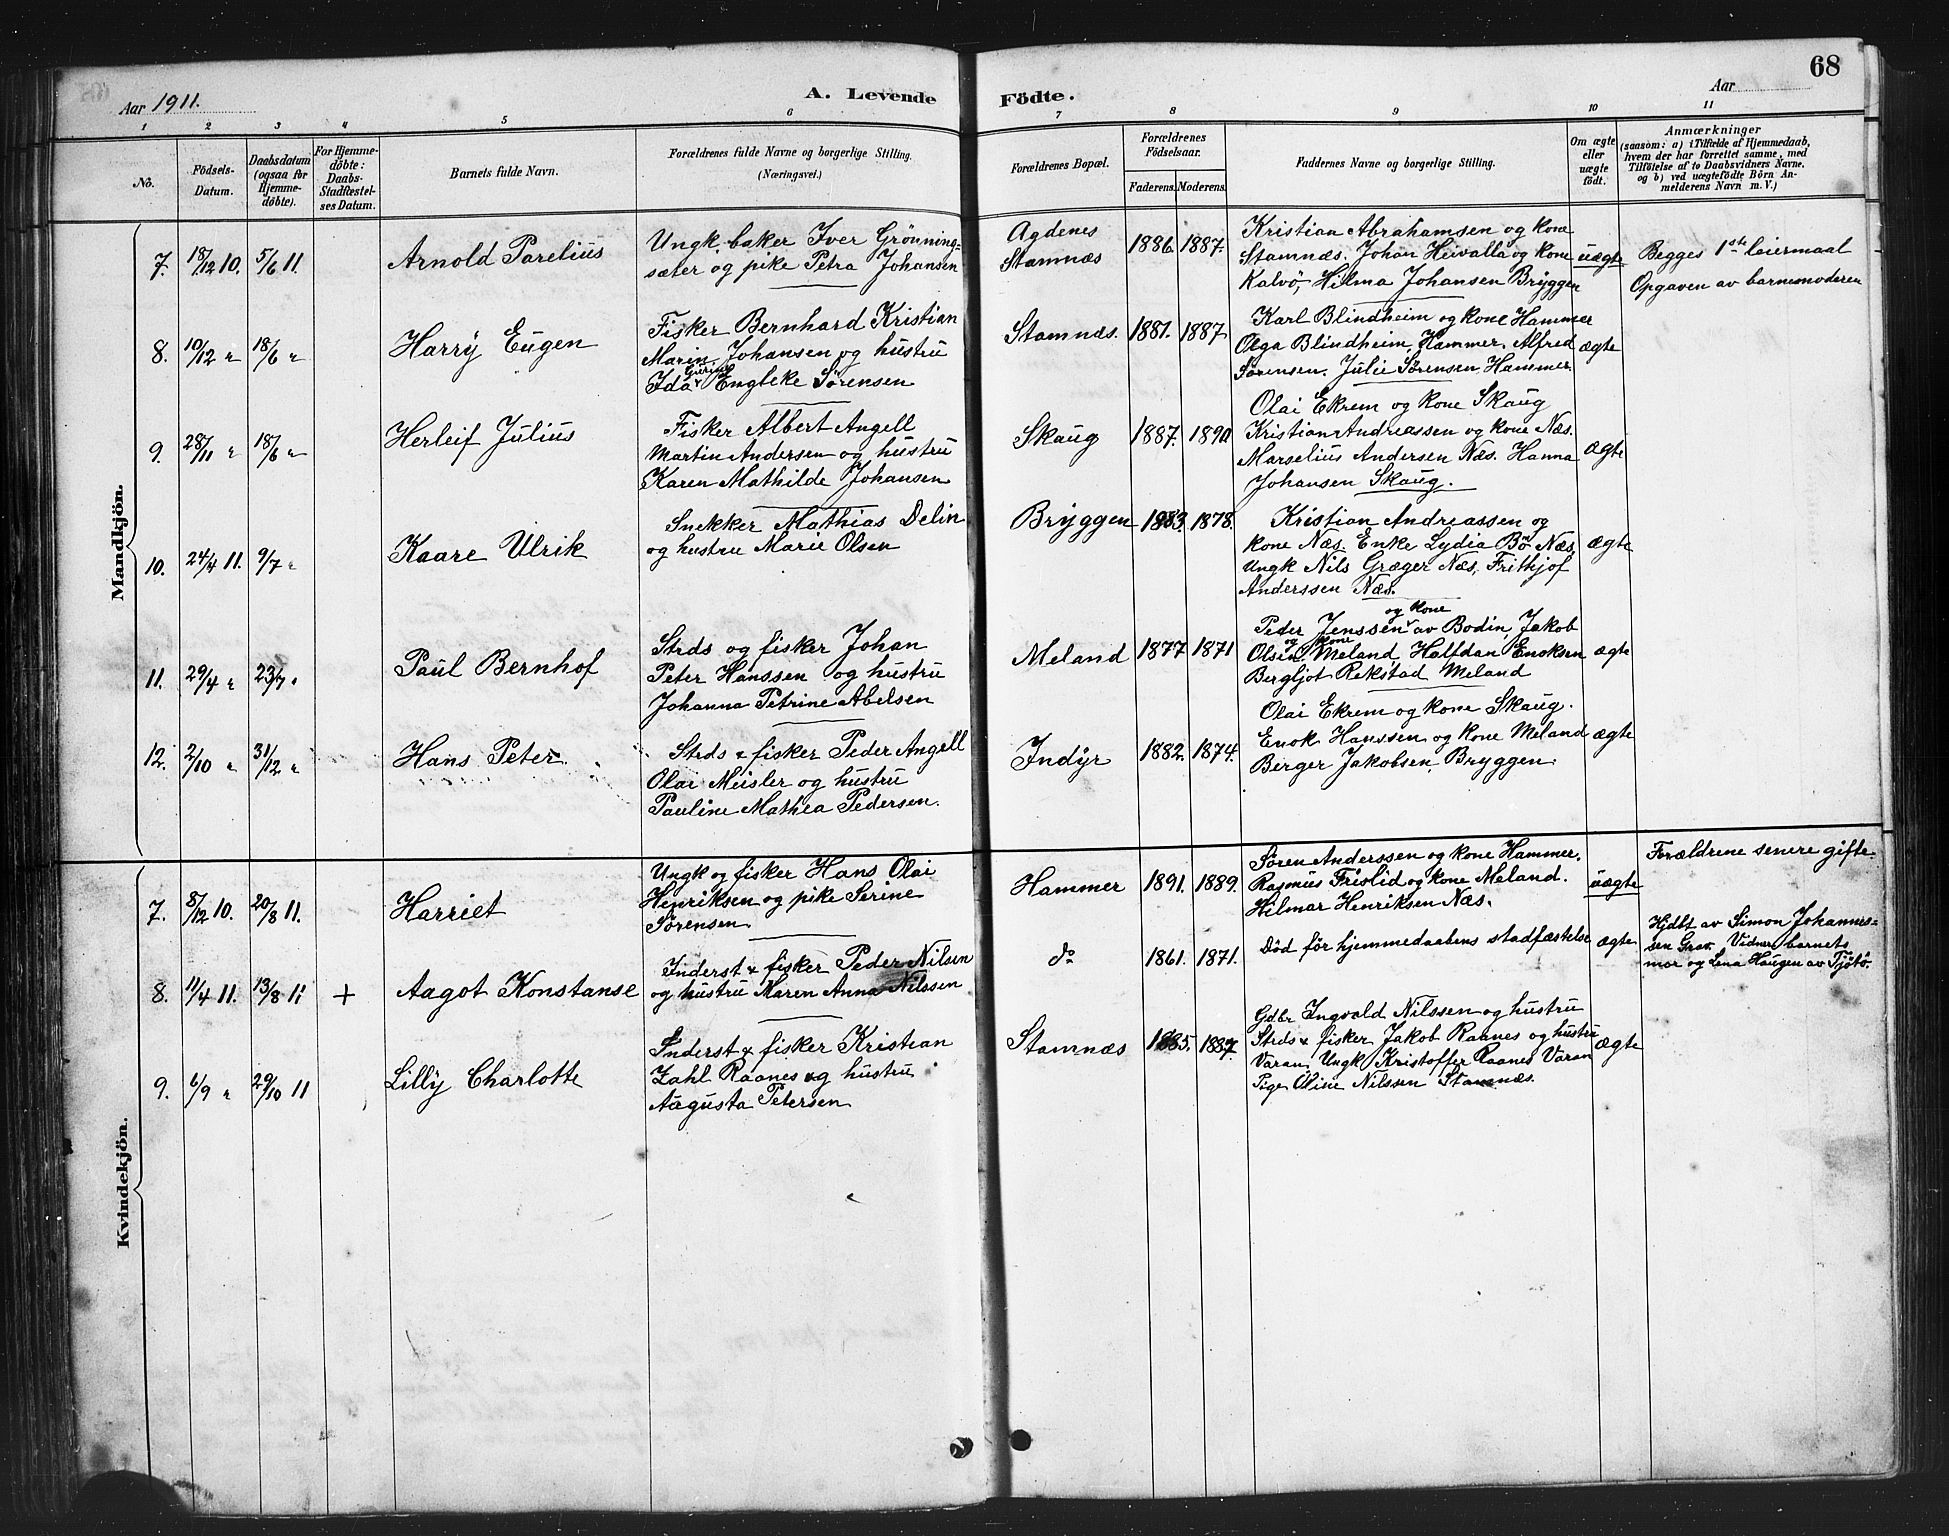 Aar 1911.
A. Levende
Födte.
Aar
68
1 2 3 4 5 6 7 8 9 10 11
No.
Födsels-
Datum.
Daabsdatum
(ogsaa for
Hjemme-
döbte).
For Hjemme-
döbte:
Daabs-
Stadfæstel-
ses Datum.
Barnets fulde Navn.
Forældrenes fulde Navne og borgerlige Stilling.
(Næringsvei.)
Forældrenes Bopæl.
Forældrenes
Födselsaar.
Faderens. Moderens.
Faddernes Navne og borgerlige Stilling.
Om ægte
eller
uægte
födt.
Anmærkninger
(saasom: a) i Tilfælde af Hjemmedaab,
hvem der har forrettet samme, med
Tilföielse af to Daabsvidners Navne.
og b) ved uægtefödte Börn An-
melderens Navn m. V.)
Mandkjön.
7. 18/12 10. 5/6 11. Arnold Parelius
Ungk. baker Iver Grönning-
sæter og pike Petra Johansen
Agdenes
Stamnæs
1886. 1887.
Kristian Abrahamsen og kone
Stamnæs. Johan Heivalla og kone
Kalvö, Hilma Johansen Bryggen
uægte
Begges 1ste leiermaal
Opgaven av barnemoderen
8. 10/12 " 18/6 " Harry Eugen
Fisker Bernhard Kristian
Marin Johansen og hustru
Ida Engleke Sørensen
Stamnæs. 1881. 1887
Karl Blindheim og kone Hammer
Olga Blindheim, Hammer. Alfred
Sørensen. Julie Sørensen, Hammer
ægte
9. 28/11 " 18/6 " Herleif Julius
Fisker Albert Angell
Martin Andersen og hustru
Karen Mathilde Johansen
Skaug 1887. 1890
Olai Ekrem og kone Skaug
Kristian Andreassen og kone Næs.
Marselius Andersen Næs. Hanna
Johansen Skaug.
ægte
10. 24/4 11. 9/7 " Kaare Ulrik
Snekker Mathias Delin
og hustru Marie Olsen
Bryggen 1883. 1878.
Kristian Andreassen og
kone Næs. Enke Lydia Bö Næs,
Ungk Nils Græger Næs, Frithjof
Anderssen Næs.
ægte
11. 29/4 " 23/7 " Paul Bernhof
Strds og fisker Johan
Peter Hanssen og hustru
Johanna Petrine Abelsen
Meland 1877 1871
og kone
Peder Jenssen av Bodin, Jakob
og kone
Olsen Meland, Halfdan Enoksen
Bergljot Rekstad Meland
ægte
12. 2/10 " 31/12 " Hans Peter
Strds & fisker Peder Angell
Olai Meisler og hustru
Pauline Mathea Pedersen.
Indyr 1882. 1874.
Olai Ekrem og kone Skaug.
Enok Hanssen og kone Meland
Berger Jakobsen, Bryggen.
ægte
Kvindekjön.
7. 8/12 10. 20/8 11. Harriet
Ungk og fisker Hans Olai
Henriksen og pike Serine
Sörensen
Hammer 1891. 1889.
Sören Anderssen og kone Hammer.
Rasmus Friolid og kone Meland.
Hilmar Henriksen Næs.
uægte
Forældrene senere gifte
8. 11/4 11. 13/8 11 + Aagot Konstanse
Inderst & fisker Peder Nilsen
og hustru Maren Anna Nilssen
do 1861. 1871.
Död för hjemmedaabens stadfæstelse
ægte
Hjdbt av Simon Johannes-
sen Grav. Vidner barnets
mor og Lena Haugen av Tjötö.
9. 6/9 " 29/10 11 Lilly Charlotte
Inderst & fisker Kristian
Zahl Raanes og hustru
Augusta Petersen
Stamnæs 1885. 1887
Gdbr Ingvald Nilssen og hustru
Strds & fisker Jakob Raanes og hustru
Varan. Ungk Kristoffer Raanes Varan
Pige Oline Nilssen Stamnæs.
ægte